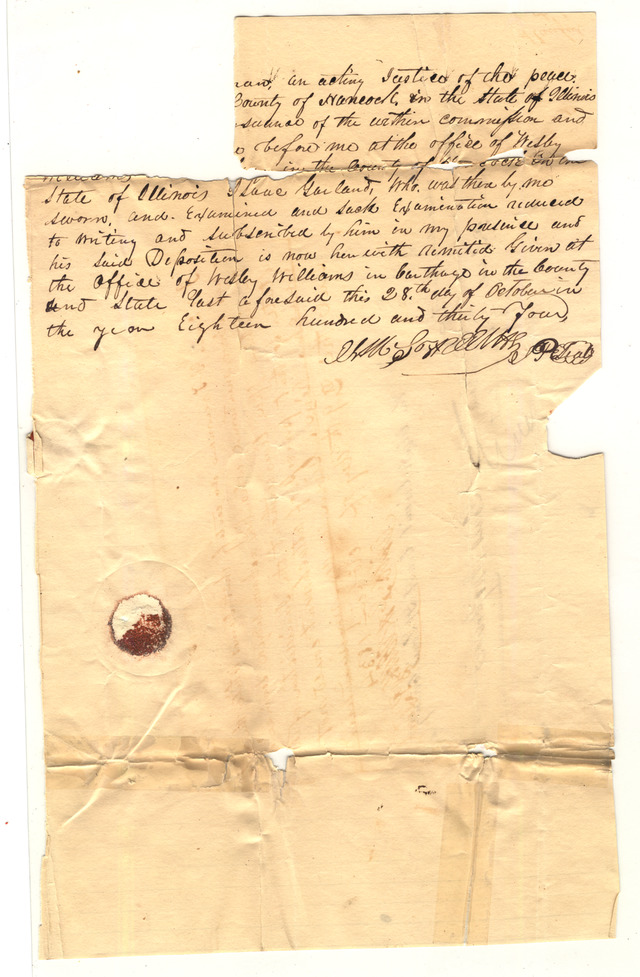 an acting Justice of the peace
County of Hancock, in the State of Illinois
of the within commission and
before me at the office of Wesley
Williams in the County of in
State of Illinois Isaac Garland, Who was then by me
sworn, and Examined and such Examination reduced
to writing and subscribed by him in my presince and
his said Deposition is now herewith remitid Given at
the office of Wesley Williams in Carthage in the County
and State last aforesaid this 28th day of October in
the year Eighteen hundred and thirty Four,